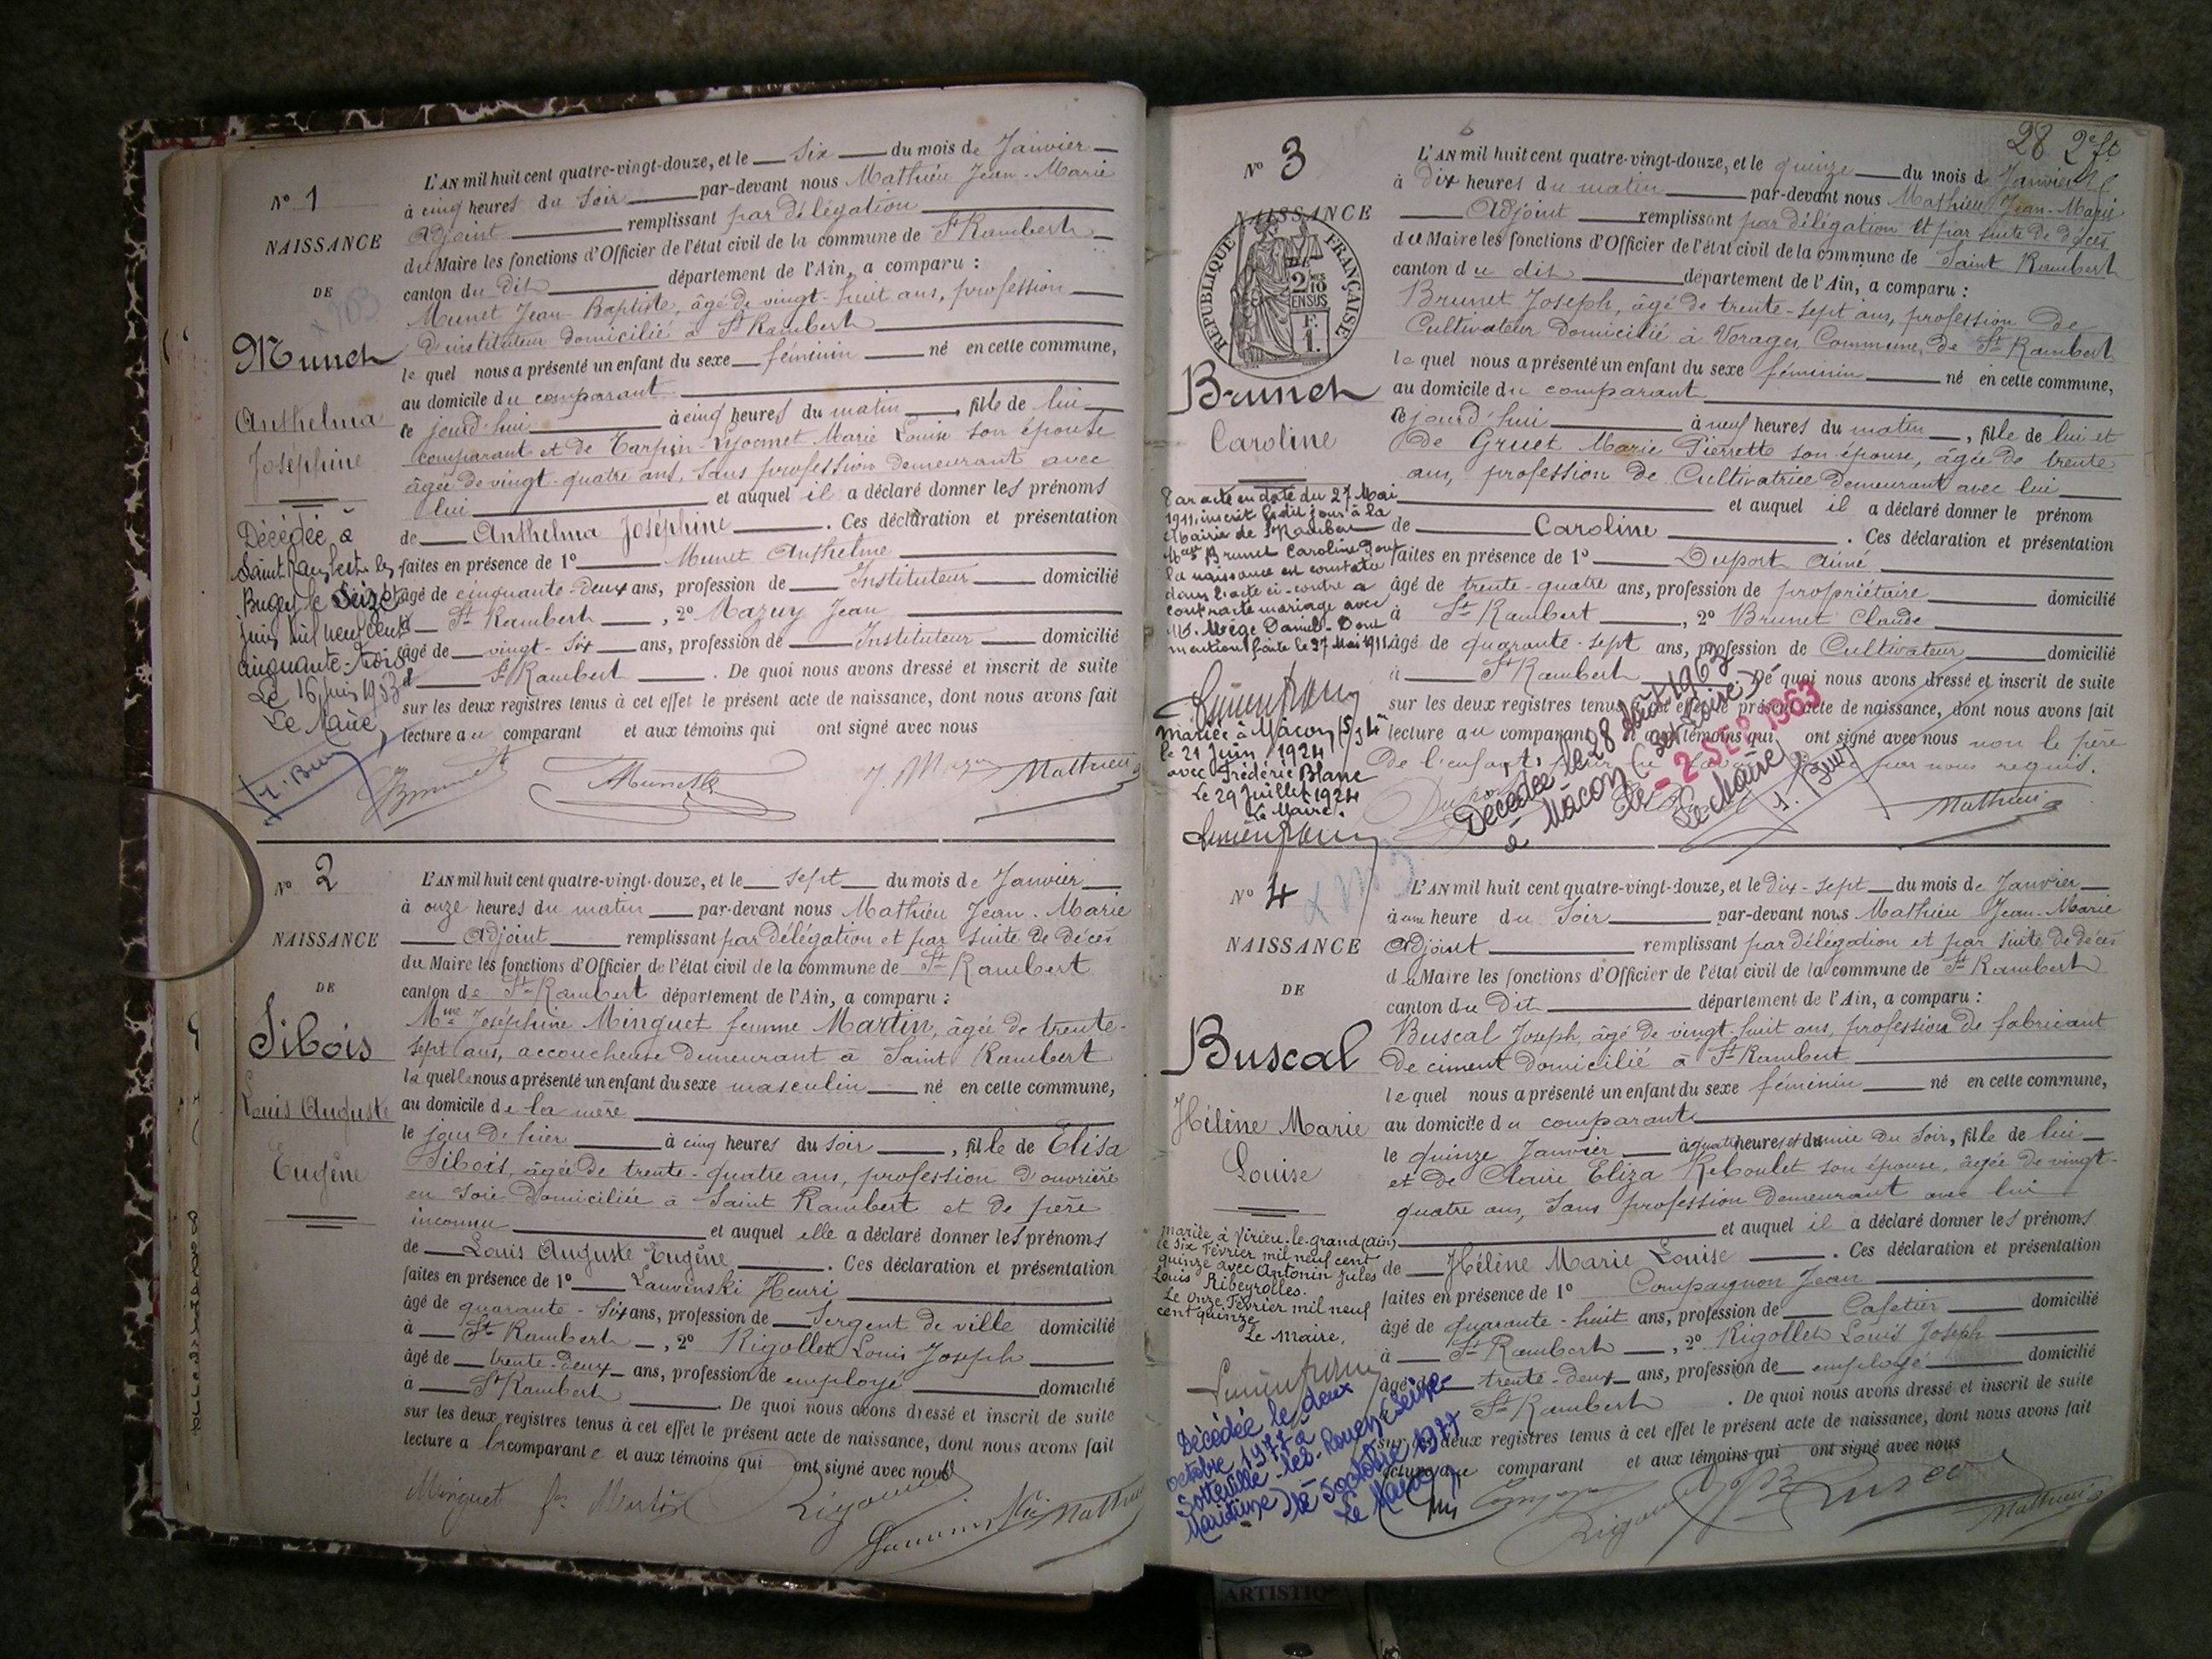 N° 1
NAISSANCE
DE
Munet
Anthelma
Joséphine
Décédée à
Saint Rambert les
Bugey le Seize
juin mil neuf cent
cinquante-trois
Le 16 juin 1953
Le Maire,
L'AN mil huit cent quatre-vingt-douze, et le six du mois de Janvier
à cinq heures du Soir par-devant nous Mathieu Jean-Marie
Adjoint remplissant par délégation
du Maire les fonctions d'Officier de l'état civil de la commune de St Rambert
canton du dit département de l'Ain, a comparu :
Munet Jean-Baptiste, âgé de vingt-huit ans, profession
d'instituteur domicilié à St Rambert
le quel nous a présenté un enfant du sexe féminin né en cette commune,
au domicile du comparant
ce jourd'hui à cinq heures du matin, fille de lui
comparant et de Tarpin-Lyonnet Marie Louise son épouse
âgée de vingt-quatre ans, sans profession demeurant avec
lui et auquel il a déclaré donner les prénoms
de Anthelma Joséphine. Ces déclaration et présentation
faites en présence de 1° Munet Anthelme
âgé de cinquante-deux ans, profession de Instituteur domicilié
St Rambert, 2° Mazuy Jean
âgé de vingt-six ans, profession de Instituteur domicilié
à St Rambert. De quoi nous avons dressé et inscrit de suite
sur les deux registres tenus à cet effet le présent acte de naissance, dont nous avons fait
lecture au comparant et aux témoins qui ont signé avec nous
Mathieu
N° 2
NAISSANCE
DE
Sibois
Louis Auguste
Eugène
L'AN mil huit cent quatre-vingt-douze, et le sept du mois de Janvier
à onze heures du matin par-devant nous Mathieu Jean-Marie
Adjoint remplissant par délégation et par suite de décès
du Maire les fonctions d'Officier de l'état civil de la commune de St Rambert
canton de St Rambert département de l'Ain, a comparu :
Mme Joséphine Minguet femme Martin, âgée de trente-
sept ans, accoucheuse demeurant à Saint Rambert
la quelle nous a présenté un enfant du sexe masculin né en cette commune,
au domicile de la mère
le jour d'hier à cinq heures du soir, fille de Elisa
Sibois, âgée de trente-quatre ans, profession d'ouvrière
en soie domiciliée à Saint Rambert et de père
inconnu et auquel elle a déclaré donner les prénoms
de Louis Auguste Eugène. Ces déclaration et présentation
faites en présence de 1° Lawinski Henri
âgé de quarante-six ans, profession de Sergent de ville domicilié
à St Rambert, 2° Rigollet Louis Joseph
âgé de trente-deux ans, profession de employé domicilié
à St Rambert. De quoi nous avons dressé et inscrit de suite
sur les deux registres tenus à cet effet le présent acte de naissance, dont nous avons fait
lecture a la comparante et aux témoins qui ont signé avec nous
Minguet fe Martin
28 2e ft
N° 3
NAISSANCE
RÉPUBLIQUE FRANÇAISE
2/10 EN SUS
Brunet
Caroline
Par acte en date du 27 Mai
1911, inscrit ledit jour à la
Mairie de St Rambert
Brunet Caroline dont
la naissance est constatée
dans l'acte ci-contre a
contracté mariage avec
M. Mège Daniel. Dont
mention faite le 27 Mai 1911.
Mariée à Mâcon (S. & L.)
le 21 Juin 1924
avec Frédéric Blanc
Le 29 Juillet 1924
Le Maire.
L'AN mil huit cent quatre-vingt-douze, et le quinze du mois de Janvier
à dix heures du matin par-devant nous Mathieu Jean-Marie
Adjoint remplissant par délégation et par suite de décès
du Maire les fonctions d'Officier de l'état civil de la commune de Saint Rambert
canton du dit département de l'Ain, a comparu :
Brunet Joseph, âgé de trente-sept ans, profession de
Cultivateur domicilié à Vorages Commune de St Rambert
le quel nous a présenté un enfant du sexe féminin né en cette commune,
au domicile du comparant
ce jourd'hui à neuf heures du matin, fille de lui et
de Gruet Marie Pierrette son épouse, âgée de trente
ans, profession de Cultivatrice demeurant avec lui
et auquel il a déclaré donner le prénom
de Caroline. Ces déclaration et présentation
faites en présence de 1° Duport Aimé
âgé de trente-quatre ans, profession de propriétaire domicilié
à St Rambert, 2° Brunet Claude
âgé de quarante-sept ans, profession de Cultivateur domicilié
à St Rambert. De quoi nous avons dressé et inscrit de suite
sur les deux registres tenus à cet effet le présent acte de naissance, dont nous avons fait
lecture au comparant et aux témoins qui ont signé avec nous non le père
de l'enfant par nous requis.
Décédée le 28 Août 1963
à Mâcon (S. et Loire)
Le - 2 SEP 1963
Le Maire
Mathieu
N° 4
NAISSANCE
DE
Buscal
Hélène Marie
Louise
Mariée à Virieu-le-grand (Ain)
le six Février mil neuf cent
quinze avec Antonin Jules
Louis Ribeyrolles.
Le onze Février mil neuf
cent quinze
Le Maire,
Décédée le deux
octobre 1977 à
Sotteville-lès-Rouen (Seine-
Maritime) le 5 octobre 1977
Le Maire
L'AN mil huit cent quatre-vingt-douze, et le dix-sept du mois de Janvier
à une heure du Soir par-devant nous Mathieu Jean-Marie
Adjoint remplissant par délégation et par suite de décès
du Maire les fonctions d'Officier de l'état civil de la commune de St Rambert
canton du Dit département de l'Ain, a comparu :
Buscal Joseph, âgé de vingt-huit ans, profession de fabricant
de ciment domicilié à St Rambert
le quel nous a présenté un enfant du sexe féminin né en cette commune,
au domicile du comparant
le quinze Janvier à quatre heures et demie du Soir, fille de lui
et de Claire Eliza Reboulet son épouse, âgée de vingt-
quatre ans, sans profession demeurant avec lui
et auquel il a déclaré donner les prénoms
de Hélène Marie Louise. Ces déclaration et présentation
faites en présence de 1° Compagnon Jean
âgé de quarante-huit ans, profession de Cafetier domicilié
à St Rambert, 2° Rigollet Louis Joseph
âgé de trente-deux ans, profession de employé domicilié
St Rambert. De quoi nous avons dressé et inscrit de suite
sur les deux registres tenus à cet effet le présent acte de naissance, dont nous avons fait
lecture au comparant et aux témoins qui ont signé avec nous
Mathieu
ARTISTIQ